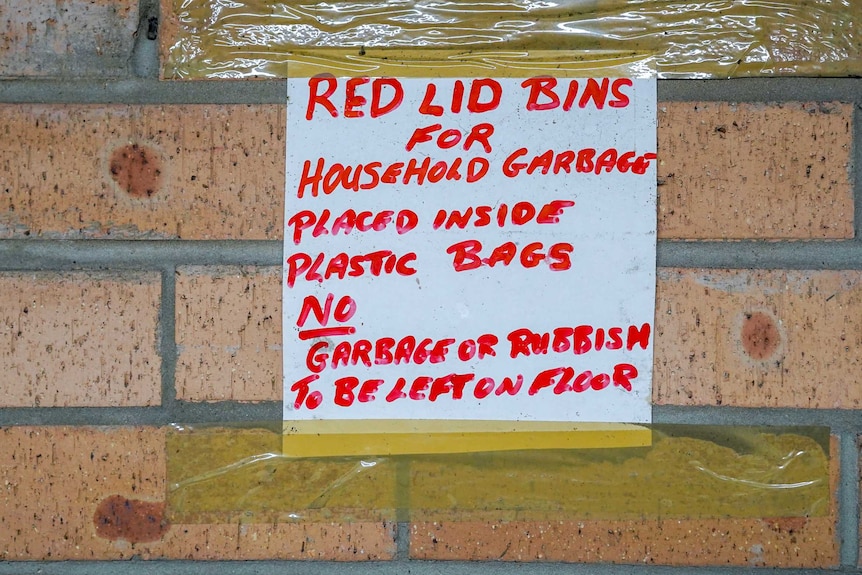 RED LID BINS
FOR
HOUSEHOLD GARBAGE
PLACED INSIDE
PLASTIC BAGS
NO
GARBAGE OR RUBBISH
TO BE LEFT ON FLOOR